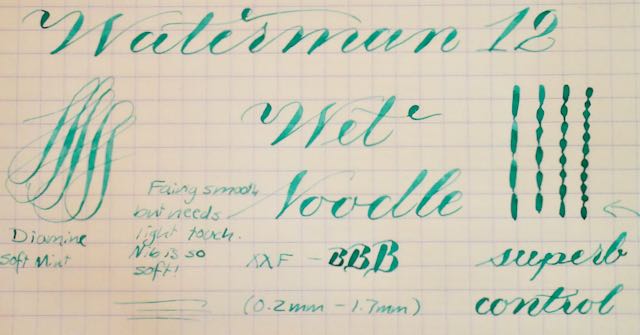 Waterman 12
Wet
Noodle
Fairly smooth
but needs
light touch.
Nib is so
soft!
Diamine
Soft Mint
XXF - BBB
(0.2mm - 1.7mm)
superb
control